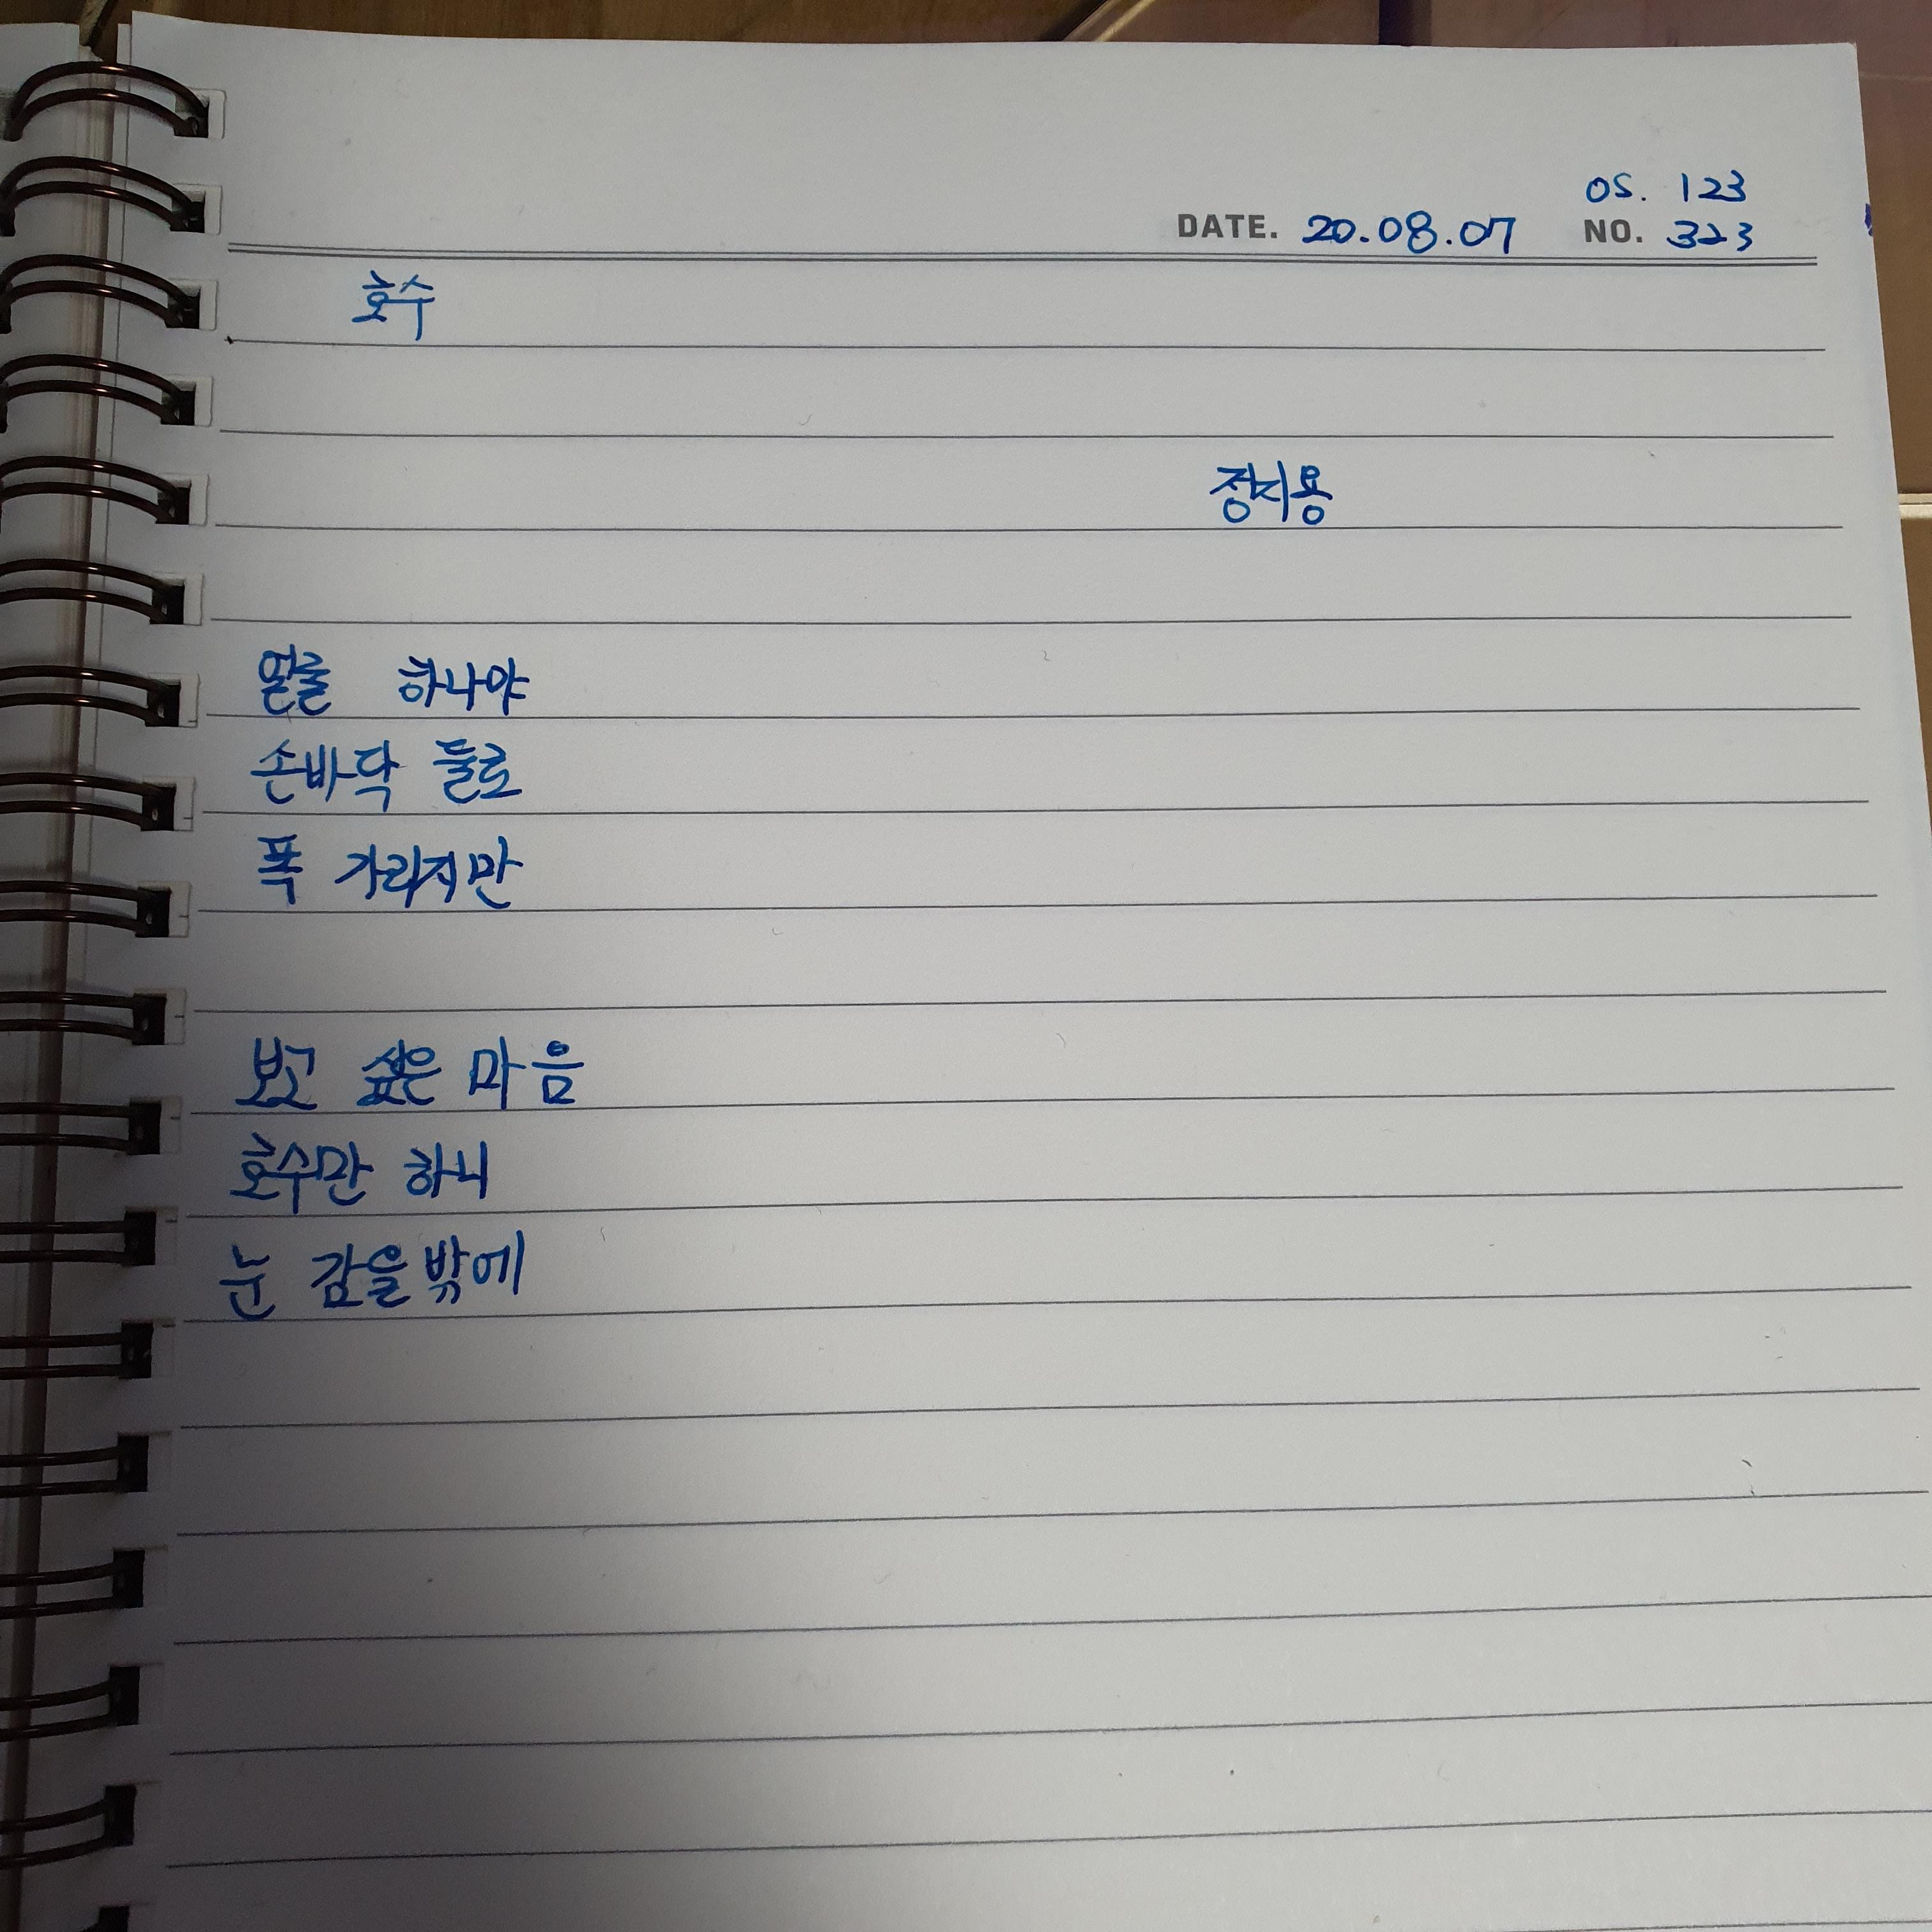 OS. 123
DATE. 20.08.07 NO. 323
호수
정지용
얼굴 하나야
손바닥 둘로
폭 가리지만
보고 싶은 마음
호수만 하니
눈 감을 밖에